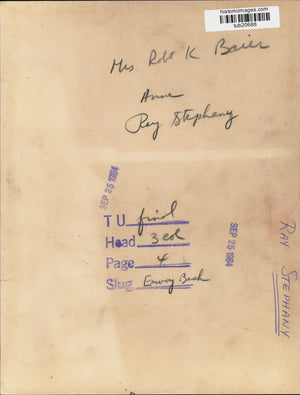 historicimages.com
tub20688
Mrs. Robt K Baier
Anne
Ray Stephany
SEP 25 1964
TU final
Head 3 col
Page 4
Slug Envoy Back
SEP 25 1964
RAY STEPHANY